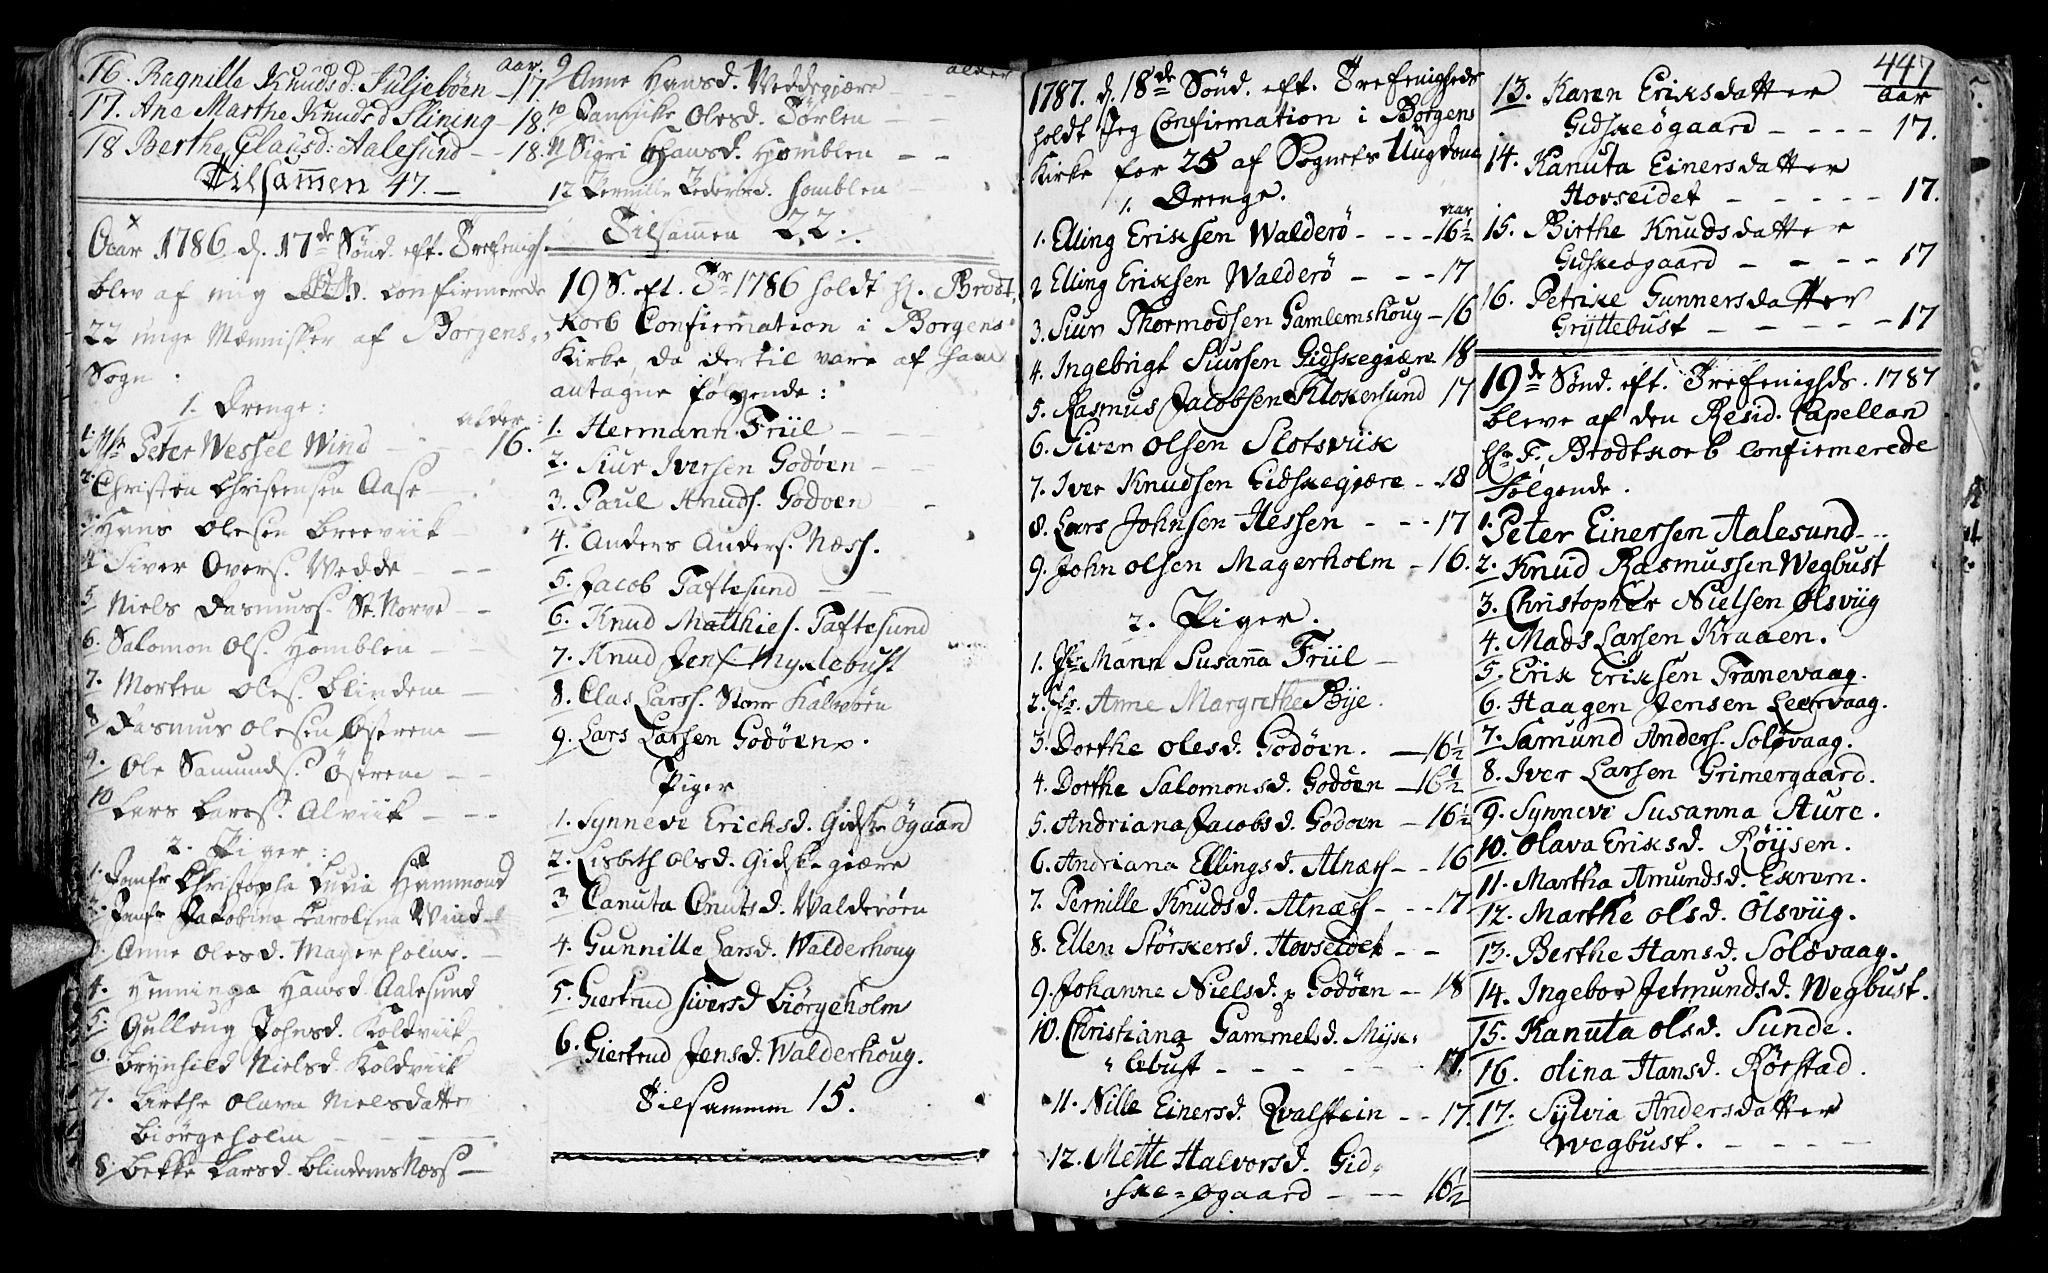 Aar.
16. Ragnille Knudsd. Juljebøen - 17
17. Ane Marthe Knudsd Slining - 18.
18 Berthe Clausd: Aalesund - - 18.
Tilsammen 47. -
Aar 1786 d. 17de Sønd. eft. Trefenigh.
blev af mig confirmerede
22 unge Mennisker af Borgens
Sogn:
1. Drenge:
alder:
1. Peter Wessel Wind - - 16.
2. Christen Christensen Aase -
3. Hans Olesen Breeviik -
4. Siver Overs. Wedde - - -
5 Niels Rasmuss. St. Norve - -
6. Salomon Ols. Homblen - -
7. Morten Oles. Blindem -
8. Rasmus Olesen Østrem -
9. Ole Samunds. Østrem - -
10 Lars Larss. Alviik - - -
2. Piger:
1. Jomfr Christopha Lucia Hammond
2. Jomfr Jakobina Carolina Wind
3. Anne Olesd. Magerholm. -
4. Henninga Hansd. Aalesund
5. Gulloug Johnsd. Koldviik
6. Brynhild Nielsd. Koldviik
7. Birthe Olava Nielsdatter
Biørgeholm - - - -
8. Bekke Larsd. Blindems Næss -
alder
9 Anne Hansd. Weddegiære - - -
10 Jannike Olesd. Tørlen - -
11 Sigri Hansd. Homblen - -
12 Pernille Pedersd. Homblen -
Tilsammen 22.
19 S. eft. Tr 1786 holdt H. Brodt
korb Confirmation i Borgens
Kirke, da dertil vare af ham
antagne følgende:
1. Hermann Friil - -
2. Siur Iversen Godøen - -
3. Paul Knuds. Godøen - -
4. Anders Anders. Næss.
5. Jacob Taftesund - -
6. Knud Matthies. Taftesund
7. Knud Jens. Myklebust
8. Clas Larss. Store Kalvøen
9. Lars Larsen Godøen.
Piger
1. Synneve Ericksd. Gidske Øgaard
2. Lisbeth Olsd. Gidskegiære
3 Canuta Cnutsd. Walderøen
4. Gunnilla Larsd. Walderhoug
5. Giertrud Siversd Biørgeholm
6. Giertrud Jensd. Walderhoug.
Tilsammen 15.
1787. d. 18de Sønd. eft. Trefenigheds
holdt Jeg Confirmation i Borgens
Kirke for 25 af Sognets Ungdom
1. Drenge.
Aar
1. Elling Eriksen Walderø - - - 16½
2 Elling Eriksen Walderø - - - 17
3. Siur Thormodsen Gamlemshoug - 16
4. Ingebrigt Siursen Gidskegiære 18
5. Rasmus Jacobsen Klokersund 17
6. Siver Olsen Slotsviik
7. Iver Knudsen Gidskegiære - 18
8. Lars Johnsen Hessen - - - 17
9. John Olsen Magerholm - 16.
2. Piger.
1. Mann Susanna Friil -
2. Anne Margrethe Bye.
3. Dorthe Olesd. Godøen. - 16½
4. Dorthe Salomonsd. Godøen - 16½
5. Andriana Jacobsd. Godøen - 16½
6. Andriana Ellingsd. Alnæss - - 16
7. Pernille Knudsd. Alnæss - - - 17
8. Ellen Størkersd. Hovseidet - -
9. Johanne Nielsd. Godøen - 18
10. Christiana Gammelsd. Myk=
lebust - - - - - - 17.
11. Nille Einersd. Qvalstein - - 17.
12. Mette Halvorsd. Gid=
ske=Øgaard - - - 16½
447
Aar
13. Karen Eriksdatter
Gidskeøgaard - - - - 17.
14. Kanuta Einersdatter
Hovseidet - - - - - 17.
15. Birthe Knudsdatter
Gidskeøgaard - - - - 17
16. Petrike Gunnersdatter
Gryttebust - - - - - 17
19de Sønd. eft. Trefenighds. 1787
bleve af den Resid. Capellan
Hr F. Brodtkorb confirmerede
Følgende.
1. Peter Einersen Aalesund - -
2. Knud Rasmussen Wegbust
3. Christopher Nielsen Ølsviig
4. Mads Larsen Kraaen.
5. Erik Eriksen Tranevaag.
6. Haagen Jensen Leervaag.
7. Samund Anders. Soløvaag.
8. Iver Larsen Grimergaard.
9. Synneve Susanna Aure.
10. Olava Eriksd. Røysen.
11. Martha Amundsd. Exrem.
12. Marthe Olsd. Ølsviig.
13. Berthe Hansd. Soløvaag.
14. Ingebor Jetmundsd. Wegbust.
15. Kanuta Olsd. Sunde.
16. Olina Hansd. Rørstad.
17. Sylvia Andersdatter
Wegbust. - - - - -